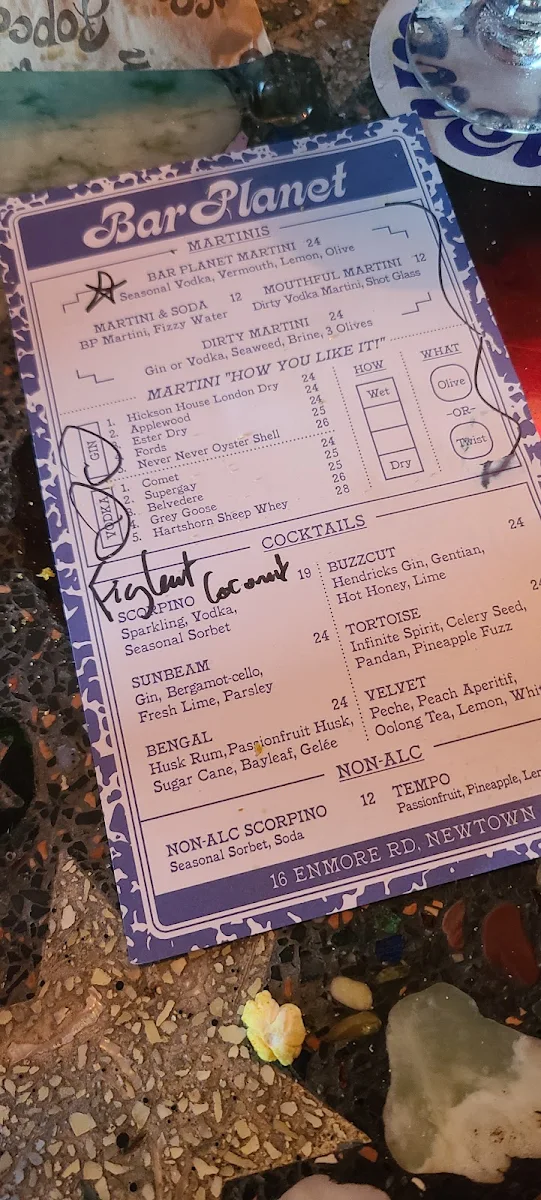 Bar Planet
MARTINIS
BAR PLANET MARTINI 24
Seasonal Vodka, Vermouth, Lemon, Olive
MARTINI & SODA 12
BP Martini, Fizzy Water
MOUTHFUL MARTINI 12
Dirty Vodka Martini, Shot Glass
DIRTY MARTINI 24
Gin or Vodka, Seaweed, Brine, 3 Olives
MARTINI "HOW YOU LIKE IT!"
GIN
1. Hickson House London Dry 24
Applewood 24
Ester Dry 24
Fords 25
Never Never Oyster Shell 26
VODKA
1. Comet 24
2. Supergay 25
Belvedere 25
Grey Goose 26
5. Hartshorn Sheep Whey 28
HOW
Wet
Dry
WHAT
Olive
-OR-
Twist
COCKTAILS
Coconut
SCORPINO 19
Sparkling, Vodka,
Seasonal Sorbet
SUNBEAM 24
Gin, Bergamot-cello,
Fresh Lime, Parsley
BENGAL 24
Husk Rum, Passionfruit Husk,
Sugar Cane, Bayleaf, Gelée
BUZZCUT 24
Hendricks Gin, Gentian,
Hot Honey, Lime
TORTOISE
Infinite Spirit, Celery Seed,
Pandan, Pineapple Fuzz
VELVET
Peche, Peach Aperitif,
Oolong Tea, Lemon,
NON-ALC
NON-ALC SCORPINO 12
Seasonal Sorbet, Soda
TEMPO
Passionfruit, Pineapple,
16 ENMORE RD, NEWTOWN